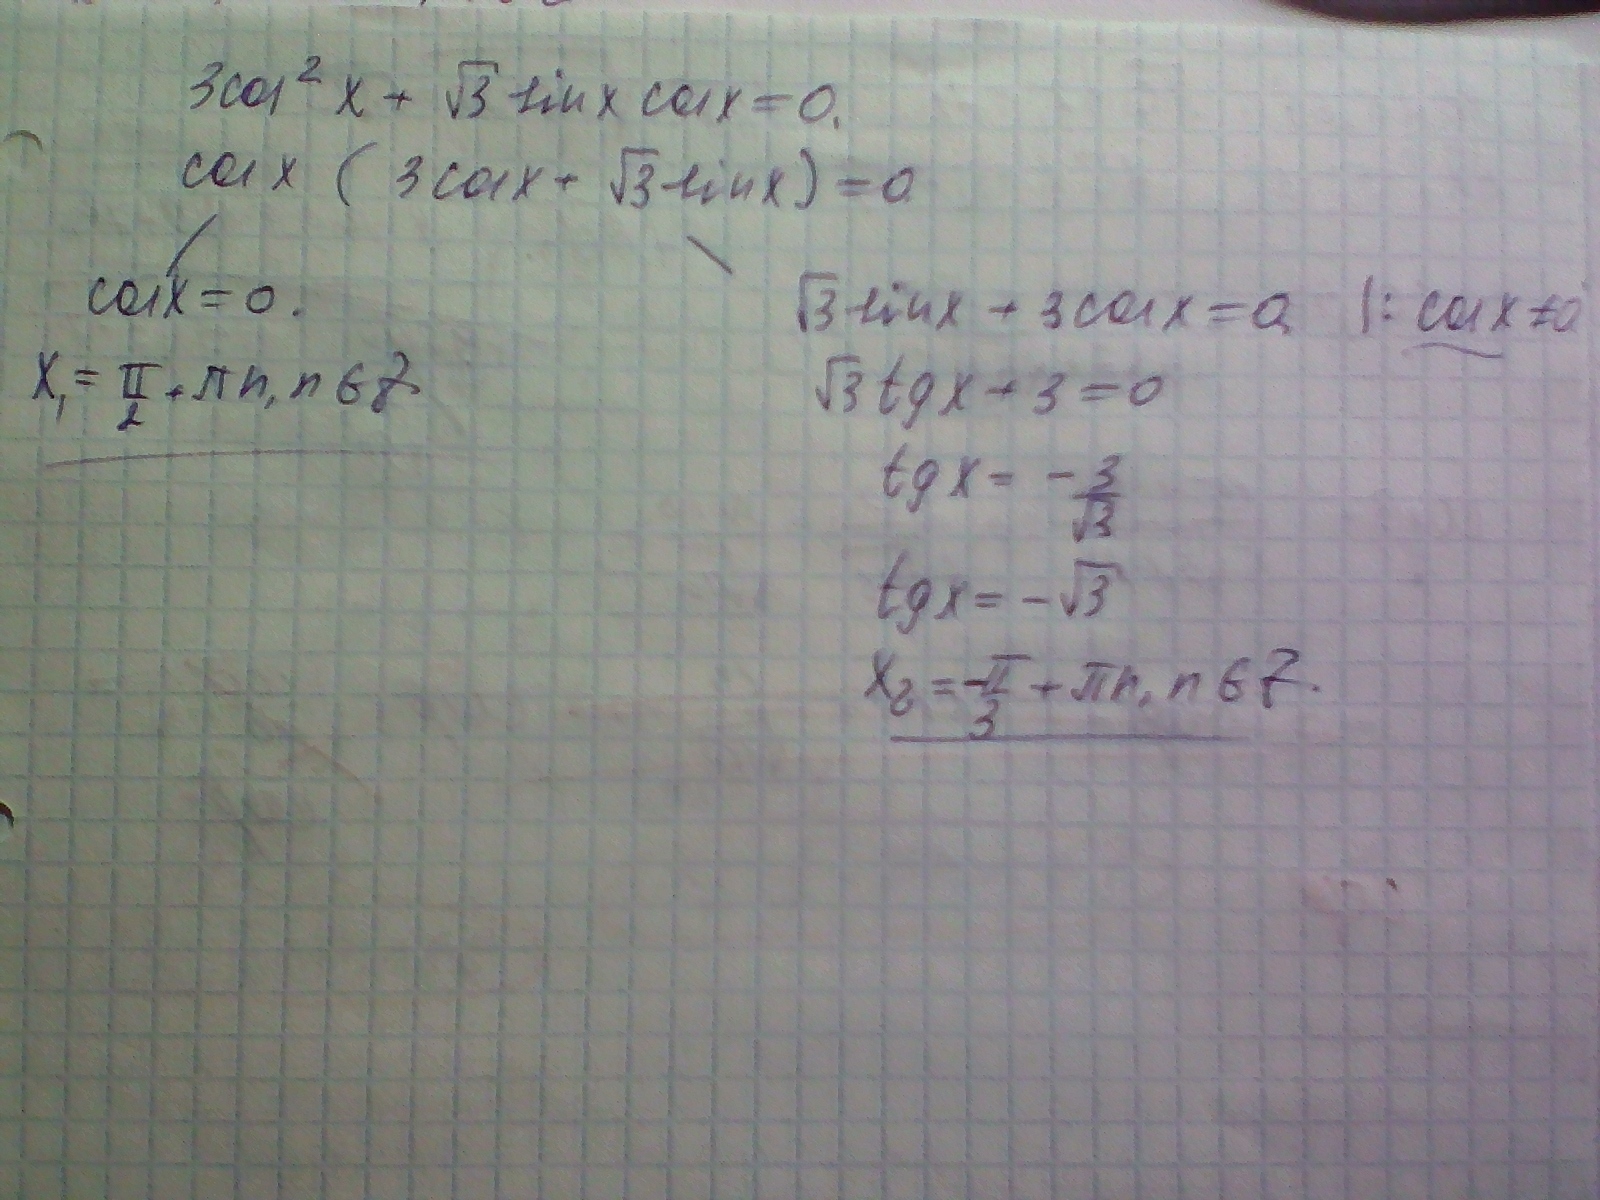 3cos² x + √3 sinx cosx = 0.
cosx ( 3cosx + √3 sinx ) = 0
cosx = 0.
x₁ = π/2 + πn, n ∈ Z
√3 sinx + 3cosx = 0 |: cosx ≠ 0
√3 tgx + 3 = 0
tgx = - 3/√3
tgx = - √3
x₂ = -π/3 + πn, n ∈ Z.